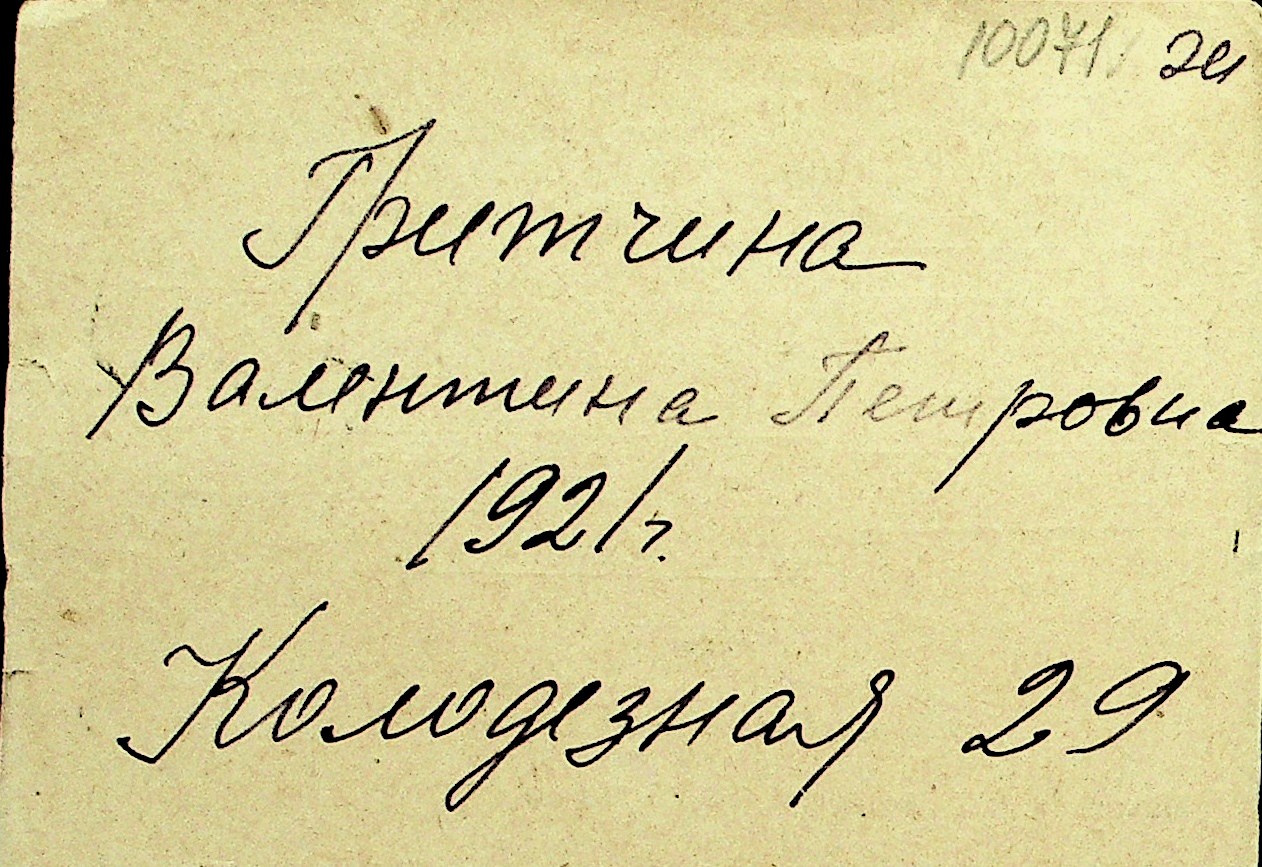 10071
Гритчина
Валентина Петровна
1921г.
Колодезная 29